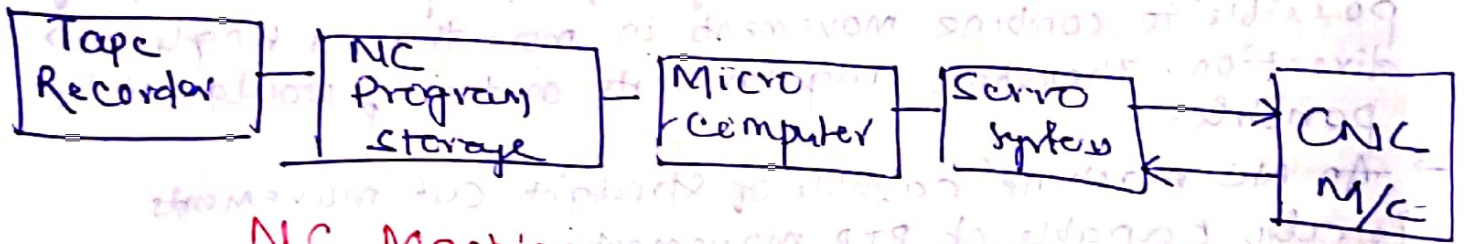 Tape
Recorder
NC
Program
Storage
Micro
Computer
Servo
system
CNC
M/C
NC